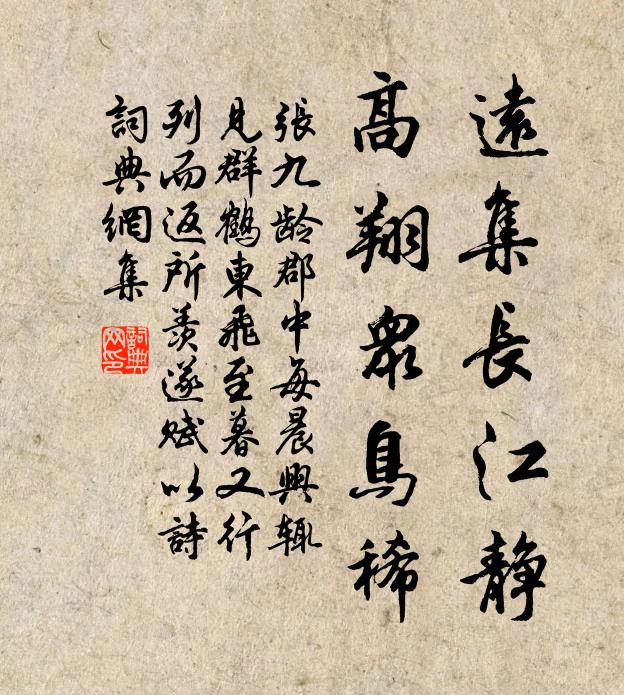 遠集長江靜
高翔衆鳥稀
張九龄郡中每晨興辄
見群鶴東飛至暮又行
列而返所羨遂赋以詩
詞典網集
詞典网印